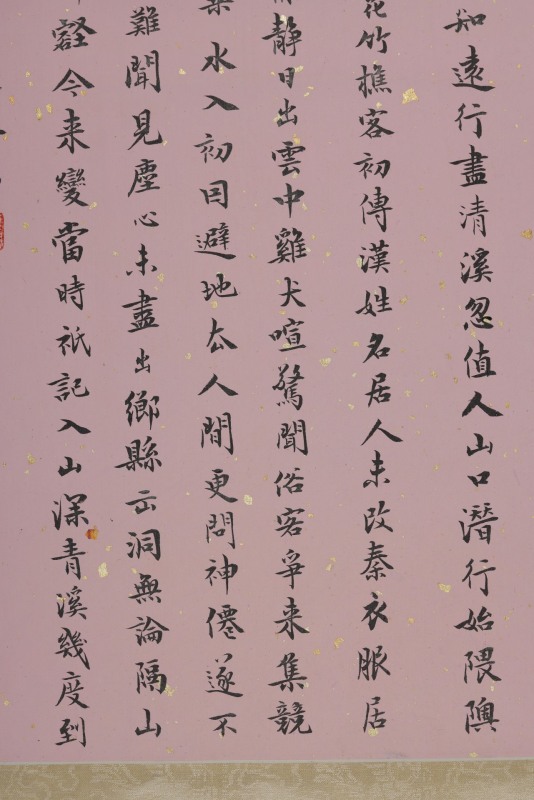 知遠行盡清溪忽值人山口潛行始隈隩
花竹樵客初傳漢姓名居人未改秦衣服居
靜日出雲中雞犬喧驚聞俗客爭来集競
水入初因避地去人間更問神僊遂不
難聞見塵心未盡出鄉縣出洞無論隔山
壑今来變當時祇記入山深青溪幾度到